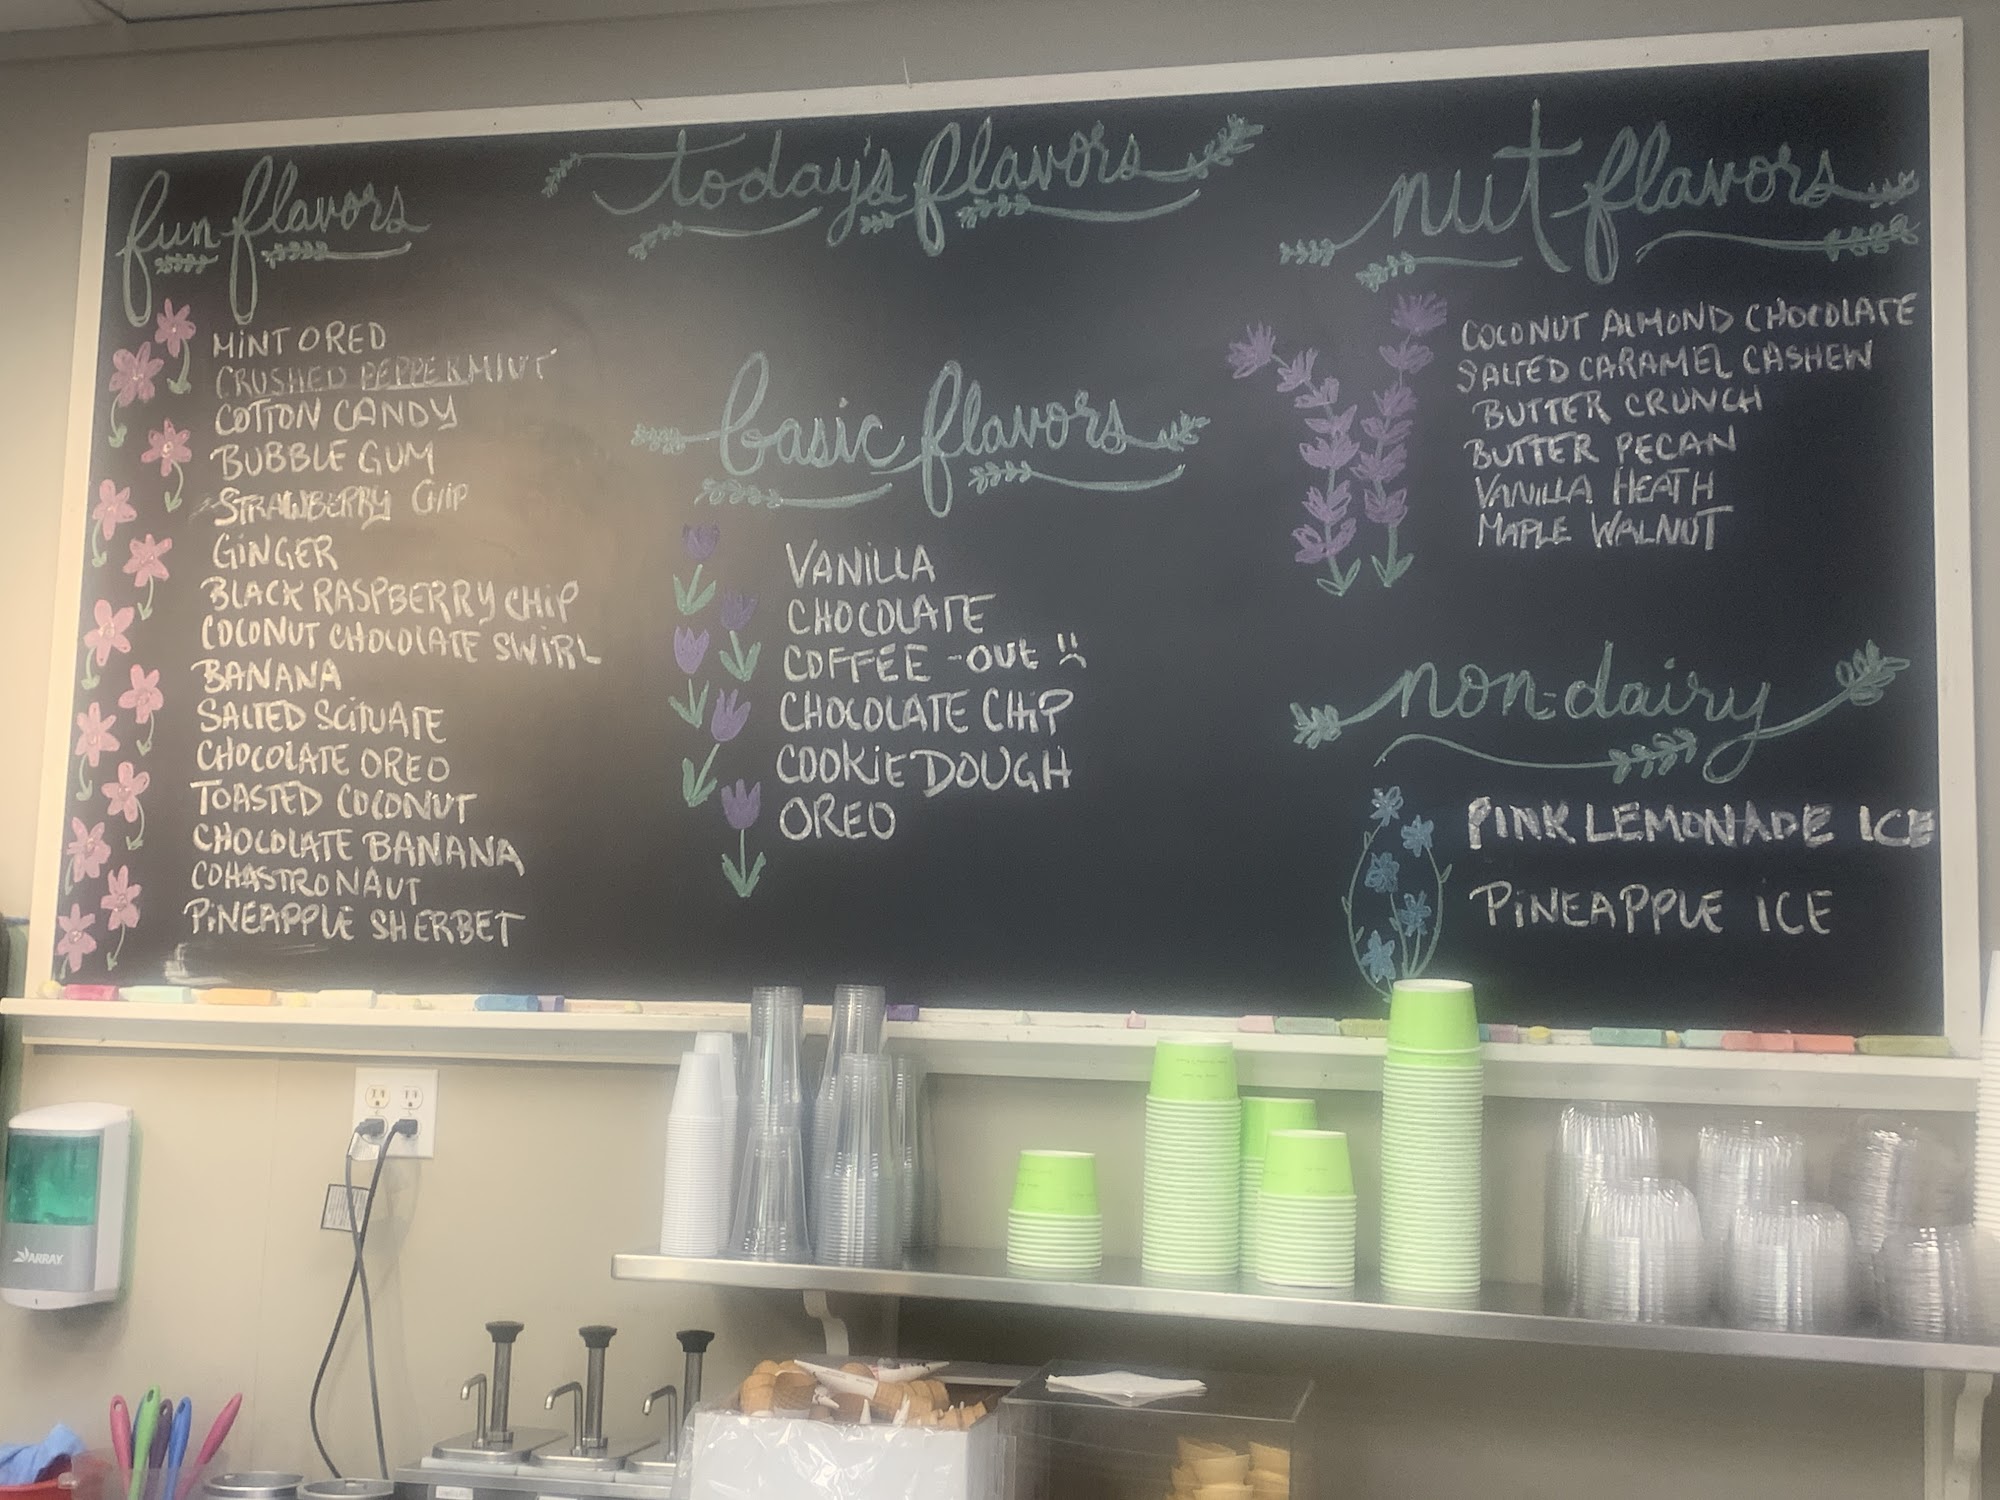 today's flavors
fun flavors
MINT OREO
CRUSHED PEPPERMINT
COTTON CANDY
BUBBLE GUM
STRAWBERRY CHIP
GINGER
BLACK RASPBERRY CHIP
COCONUT CHOCOLATE SWIRL
BANANA
SALTED SCITUATE
CHOCOLATE OREO
TOASTED COCONUT
CHOCOLATE BANANA
COHASTRONAUT
PINEAPPLE SHERBET
basic flavors
VANILLA
CHOCOLATE
COFFEE -OUT
CHOCOLATE CHIP
COOKIE DOUGH
OREO
nut flavors
COCONUT ALMOND CHOCOLATE
SALTED CARAMEL CASHEW
BUTTER CRUNCH
BUTTER PECAN
VANILLA HEATH
MAPLE WALNUT
non-dairy
PINK LEMONADE ICE
PINEAPPLE ICE
ARRAY